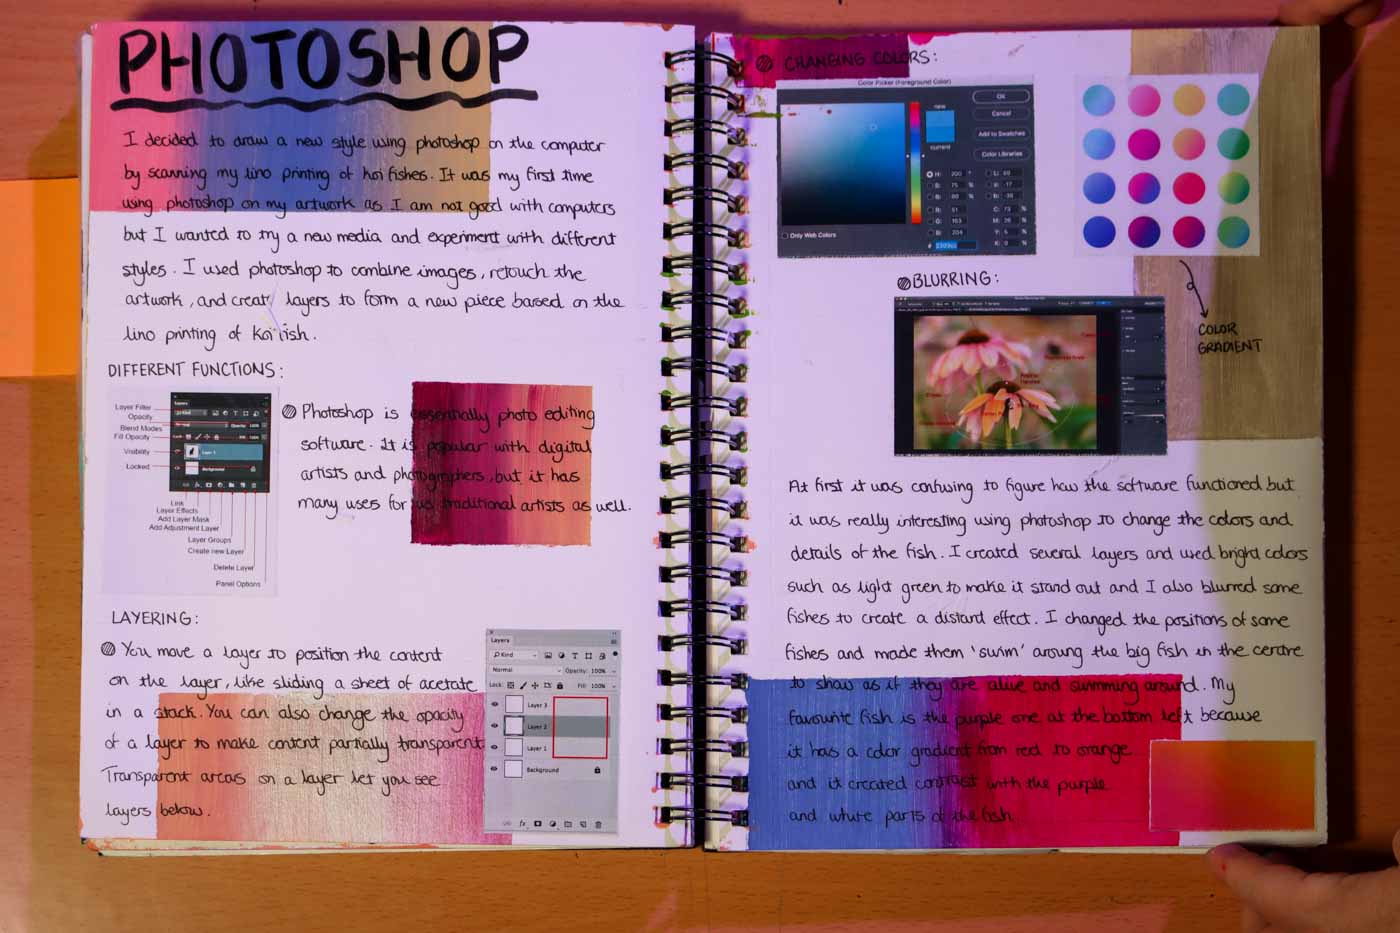 PHOTOSHOP
I decided to draw a new style using photoshop on the computer
by scanning my lino printing of koi fishes. It was my first time
using photoshop on my artwork as I am not good with computers
but I wanted to try a new media and experiment with different
styles. I used photoshop to combine images, retouch the
artwork, and create layers to form a new piece based on the
lino printing of Koi fish.
DIFFERENT FUNCTIONS:
Layer Filter
Opacity
Blend Modes
Fill Opacity
Visibility
Locked
Layers
Kind
Normal
Opacity: 100%
Lock:
Fill: 100%
Layer 1
Background
Link
Layer Effects
Add Layer Mask
Add Adjustment Layer
Layer Groups
Create new Layer
Delete Layer
Panel Options
Photoshop is essentially photo editing
software. It is popular with digital
artists and photographers, but it has
many uses for us traditional artists as well.
LAYERING:
You move a layer to position the content
on the layer, like sliding a sheet of acetate
in a stack. You can also change the opacity
of a layer to make content partially transparent.
Transparent areas on a layer let you see
layers below.
Layers
Kind
Normal
Opacity: 100%
Lock:
Fill: 100%
Layer 3
Layer 2
Layer 1
Background
CHANGING COLORS:
Color Picker (Foreground Color)
new
current
OK
Cancel
Add to Swatches
Color Libraries
H: 200 °
S: 75 %
B: 80 %
R: 51
G: 153
B: 204
L: 59
a: -17
b: -38
C: 73 %
M: 28 %
Y: 5 %
K: 0 %
Only Web Colors
# 3399cc
COLOR
GRADIENT
BLURRING:
At first it was confusing to figure how the software functioned but
it was really interesting using photoshop to change the colors and
details of the fish. I created several layers and used bright colors
such as light green to make it stand out and I also blurred some
fishes to create a distant effect. I changed the positions of some
fishes and made them 'swim' aroung the big fish in the centre
to show as if they are alive and swimming around. My
favourite fish is the purple one at the bottom left because
it has a color gradient from red to orange
and it created contrast with the purple
and white parts of the fish.